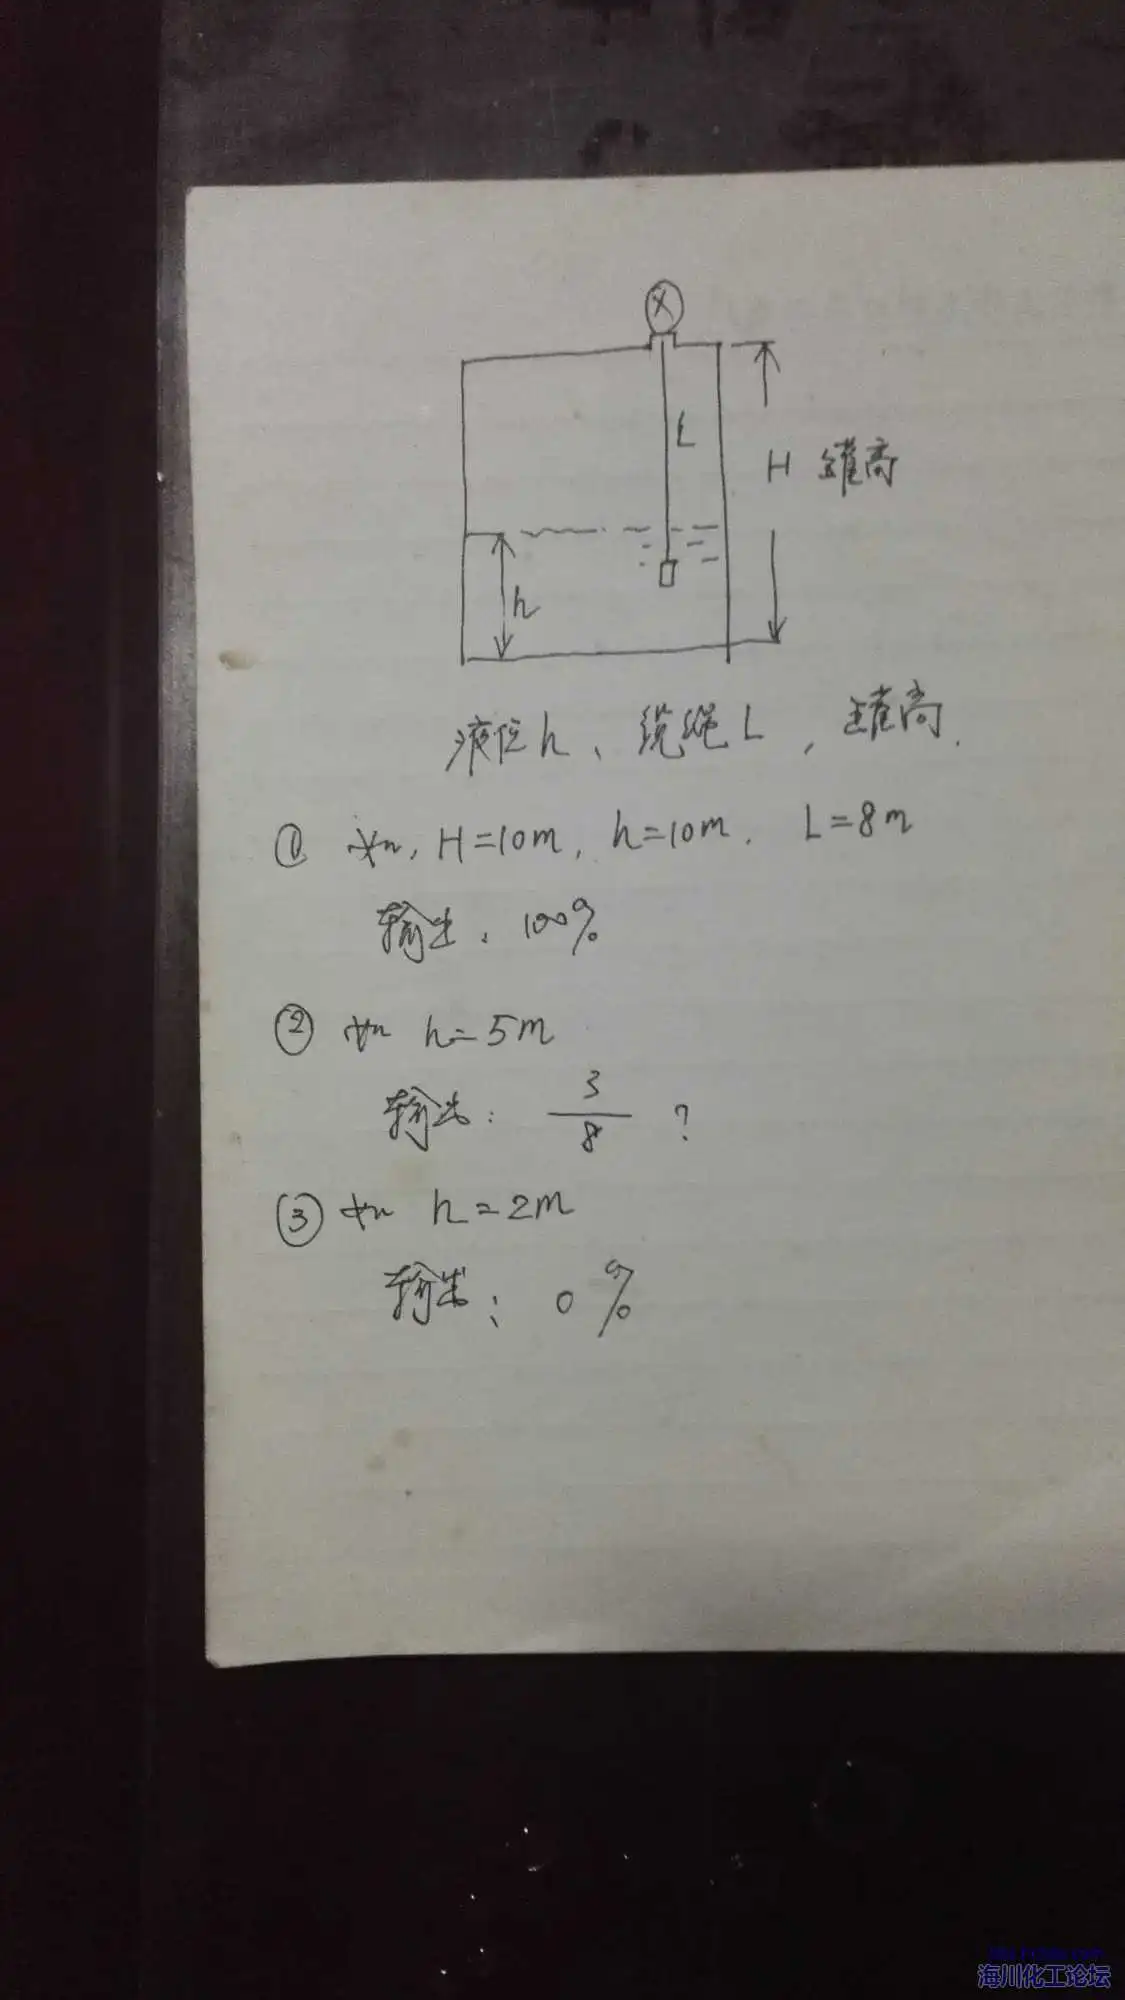 X
L
H 罐高
h
液位h、缆绳L，罐高.
① 如, H=10m, h=10m. L=8m
输出: 100%
② 如 h=5m
输出: 3/8 ?
③ 如 h=2m
输出: 0%
海川化工论坛